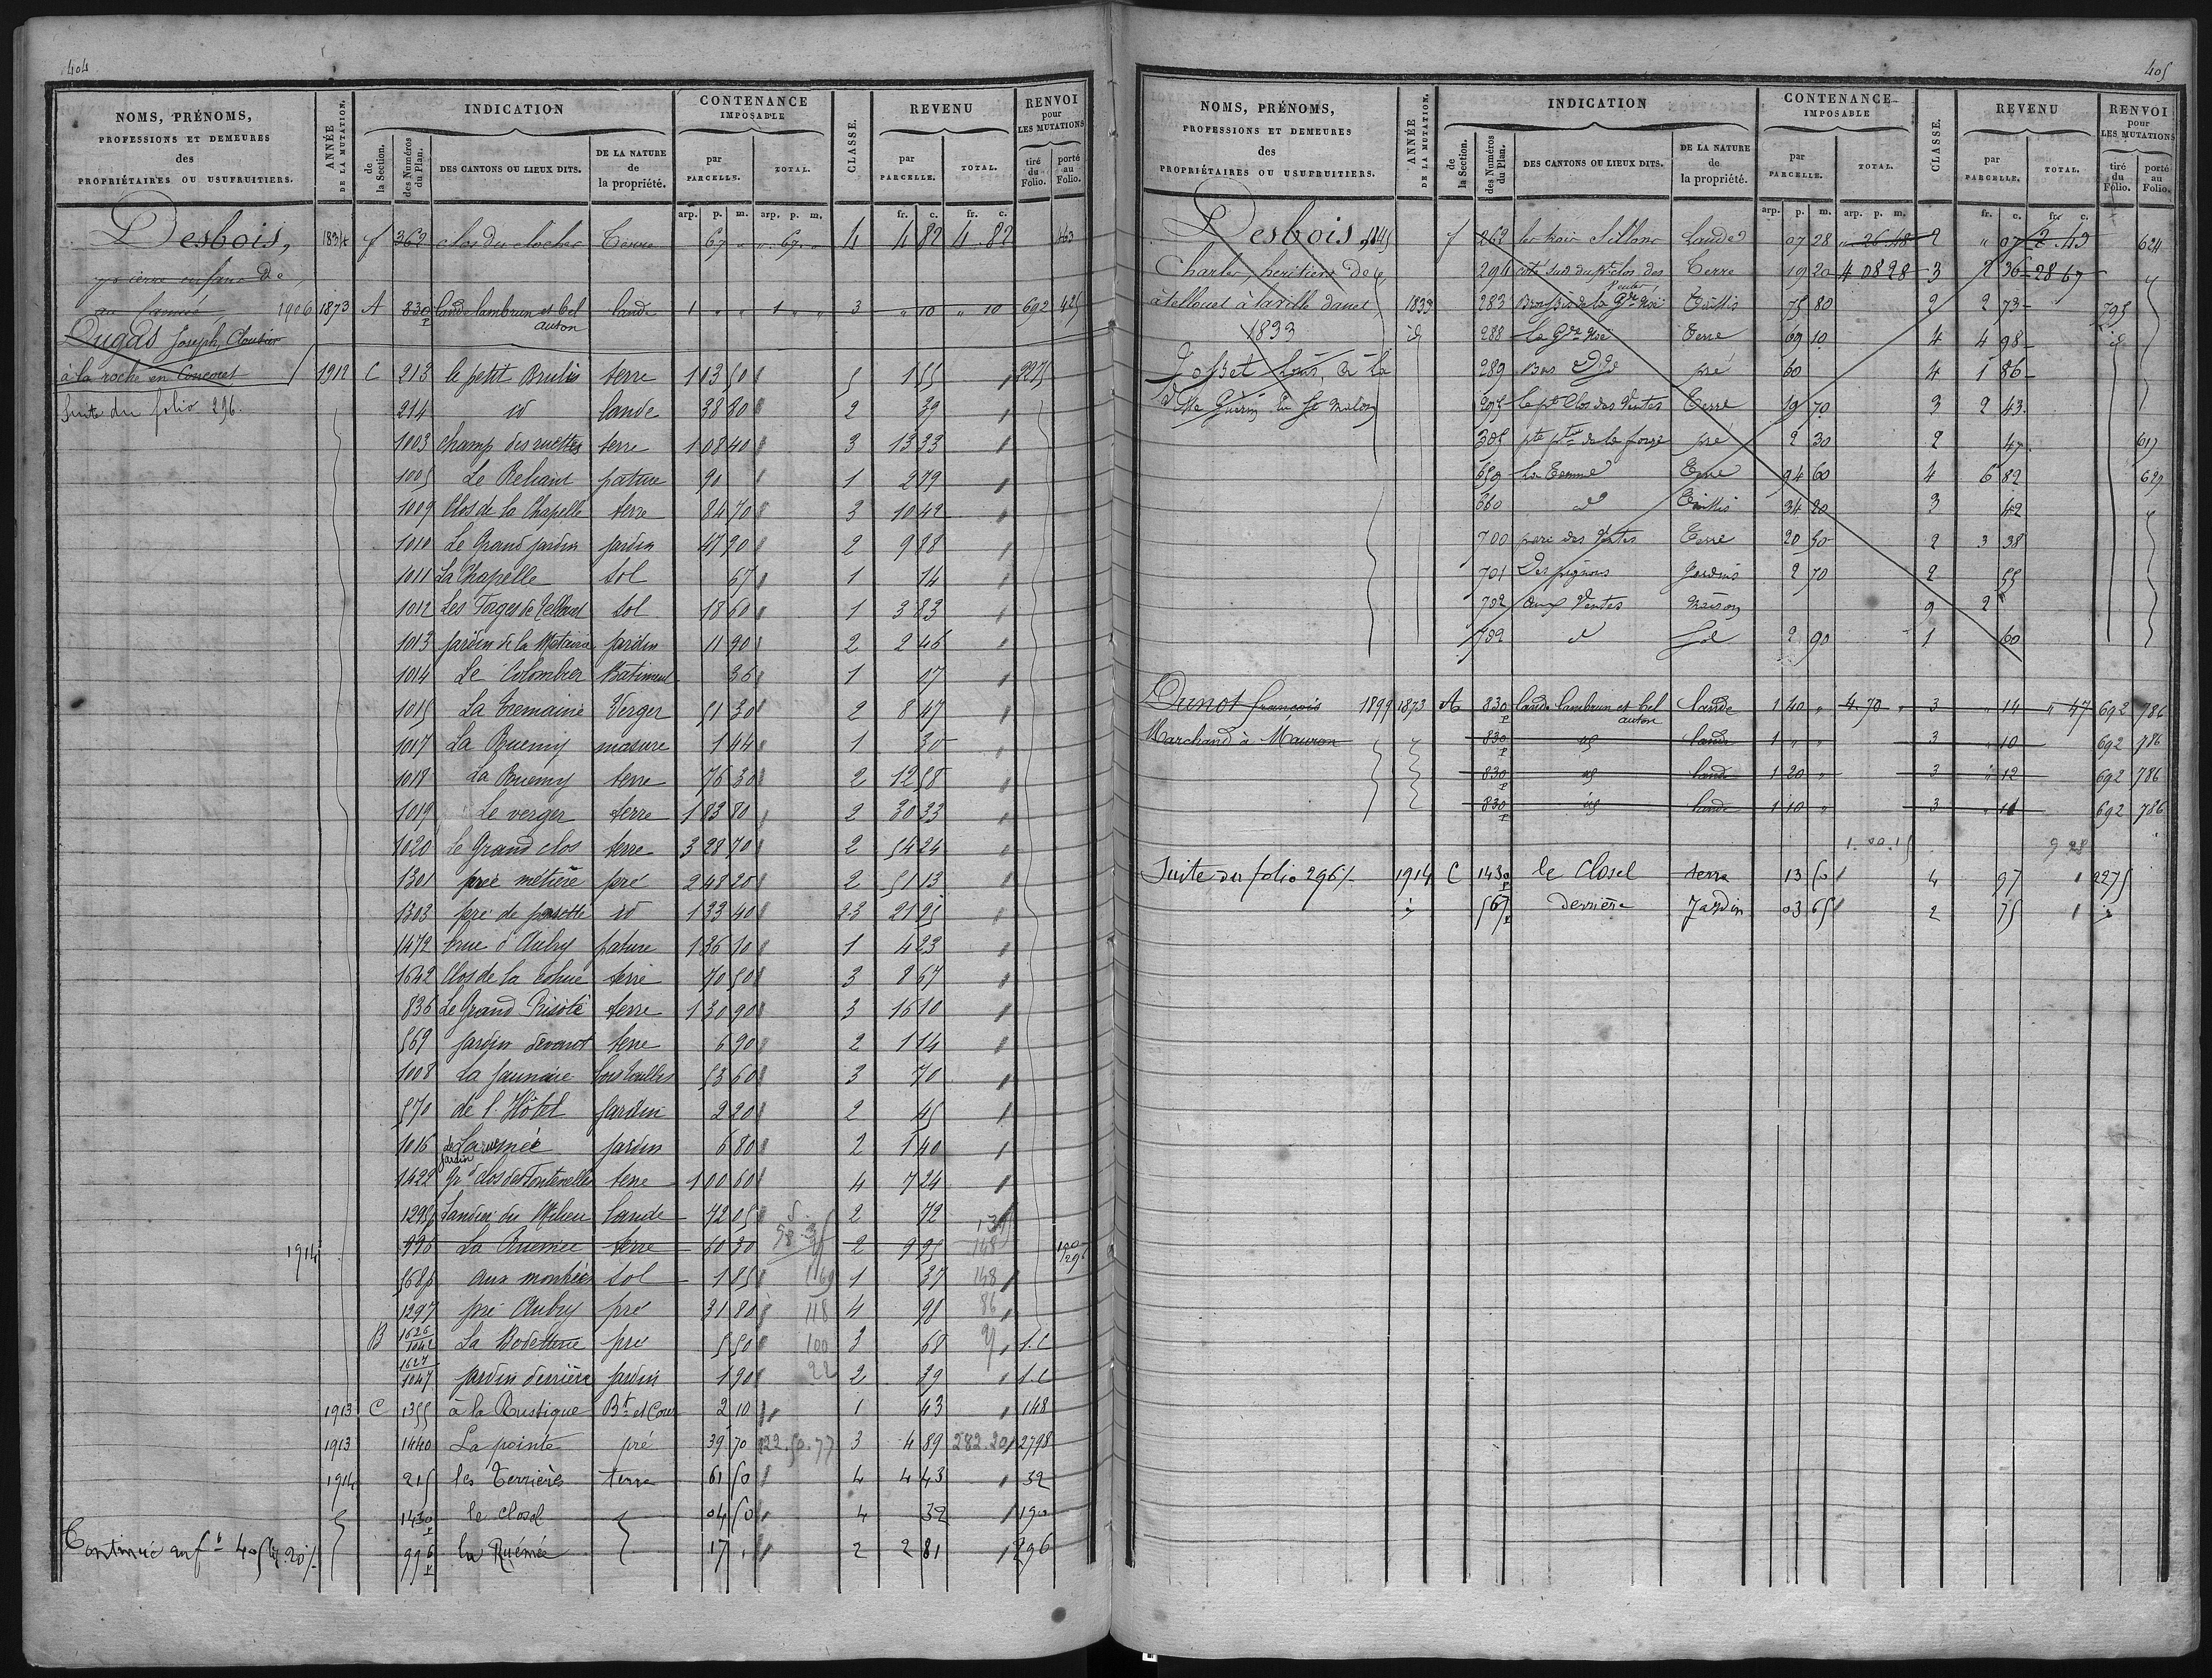 404
NOMS, PRÉNOMS, PROFESSIONS ET DEMEURES des PROPRIÉTAIRES OU USUFRUITIERS.
ANNÉE DE LA MUTATION.
INDICATION
de la Section.
des Numéros du Plan.
DES CANTONS OU LIEUX DITS.
DE LA NATURE de la propriété.
CONTENANCE IMPOSABLE
par PARCELLE.
TOTAL.
CLASSE.
REVENU
par PARCELLE.
TOTAL.
RENVOI pour LES MUTATIONS
tiré du Folio.
porté au Folio.
arp. p. m. arp. p. m. fr. c. fr. c.
Desbois, 1834 f 362 clos du clocher Terre 67 " " 67 " 4 4 82 4 82 463
1906 1873 A 830 p lande lambrun et bel auton lande 1 " " 1 " " 3 " 10 " 10 692 425
Dugas Joseph, Cloutier
à la roche en Concoret 1912 C 213 le petit Brulis terre 1 03 50 5 1 55 2275
Suite du folio 296. 214 id lande 38 80 2 39
1003 champ des ruettes terre 1 08 40 3 13 33
1005 Le Reliant pature 90 1 2 79
1009 Clos de la Chapelle terre 84 70 3 10 42
1010 Le Grand jardin jardin 47 90 2 9 88
1011 La Chapelle sol 67 1 14
1012 Les Forges de Tellouet sol 18 60 1 3 83
1013 jardin de la Métairie jardin 11 90 2 2 46
1014 Le Colombier Batiment 36 1 17
1015 La Tremaine Verger 51 30 2 8 47
1017 La Ruemy masure 1 44 1 30
1018 La Ruemy terre 76 30 2 12 58
1019 Le verger terre 1 83 80 2 30 33
1020 Le Grand clos terre 3 28 70 2 54 24
1301 pré métière pré 2 48 20 2 51 13
1303 pré de pasette id 1 33 40 2.3 21 95
1472 rue d'Aubry pature 1 36 10 1 4 23
1642 Clos de la cohue terre 70 50 3 8 67
836 Le Grand Risoté terre 1 30 90 3 16 10
569 jardin devant terre 6 90 2 1 14
1008 La Jaunaie bois taillis 53 60 3 70
570 de l'Hôtel jardin 2 20 2 45
1016 jardin de La ruemée jardin 6 80 2 1 40
1422 Gr d clos des Fontenelles terre 1 00 60 4 7 24
1295 p Landier du Milieu lande 72 05 2 72
1914 996 La Ruemée terre 60 30 2 9 95
568 p aux montées sol 1 85 1 37 148
1297 pré Aubry pré 31 80 118 4 98 86
B 1626/1042 La Bodetterie pré 5 50 100 3 68 1.C
1627/1047 jardin derrière jardin 1 90 22 2 39 1.C
1913 C 1355 à la Rustique Bt et Cour 2 10 1 43 148
1913 1440 La pointe pré 39 70 122.50.77 3 4 89 282.20 2798
1914 215 les Terrières terre 61 50 4 4 43 32
1430 p le closel 04 50 4 32 190
Continué au fo 405 lig 20 996 p la Ruémée 17 2 2 81 296
405
NOMS, PRÉNOMS, PROFESSIONS ET DEMEURES des PROPRIÉTAIRES OU USUFRUITIERS.
ANNÉE DE LA MUTATION.
INDICATION
de la Section.
des Numéros du Plan.
DES CANTONS OU LIEUX DITS.
DE LA NATURE de la propriété.
CONTENANCE IMPOSABLE
par PARCELLE.
TOTAL.
CLASSE.
REVENU
par PARCELLE.
TOTAL.
RENVOI pour LES MUTATIONS
tiré du Folio.
porté au Folio.
arp. p. m. arp. p. m. fr. c. fr. c.
Desbois 1845 f 262 les trois Sillons Landes 07 28 " 26 48 2 " 07 2 43 624
Charles, heritiers de 294 coté sud du pt clos des Ventes Terre 19 20 4 08 28 3 2 36 28 67
à tellouet à la ville danet 1833 283 Brosse de la Gde Noë Taillis 75 80 2 2 73 795
1833 id 288 la Gde Noë Terre 69 10 4 4 98 id
Josset Louis, à la 289 Bas pré 60 4 1 86
Ville Guerin en St Malon 295 le pt Clos des Ventes Terre 19 70 3 2 43
305 pré 2 30 2 47 619
659 La Tomme Terre 94 60 4 6 82 629
660 d Taillis 34 20 3 42
700 parc des Ventes Terre 20 50 2 3 38
701 Des pignons Jardins 2 70 2 55
702 aux Ventes Maison 9 2
702 d Sol 2 90 1 60
Dunot francois 1899 1873 A 830 p lande lambrun et bel auton lande 1 40 " 4 70 " 3 " 14 " 47 692 786
Marchand à Mauron 830 p id lande 1 " " 3 " 10 692 786
830 p id lande 1 20 " 3 " 12 692 786
830 p id lande 1 10 " 3 " 11 692 786
9 28
Suite du folio 296 1914 C 1430 p le Closel terre 13 50 4 97 2275
567 p derrière Jardin 03 65 2 75